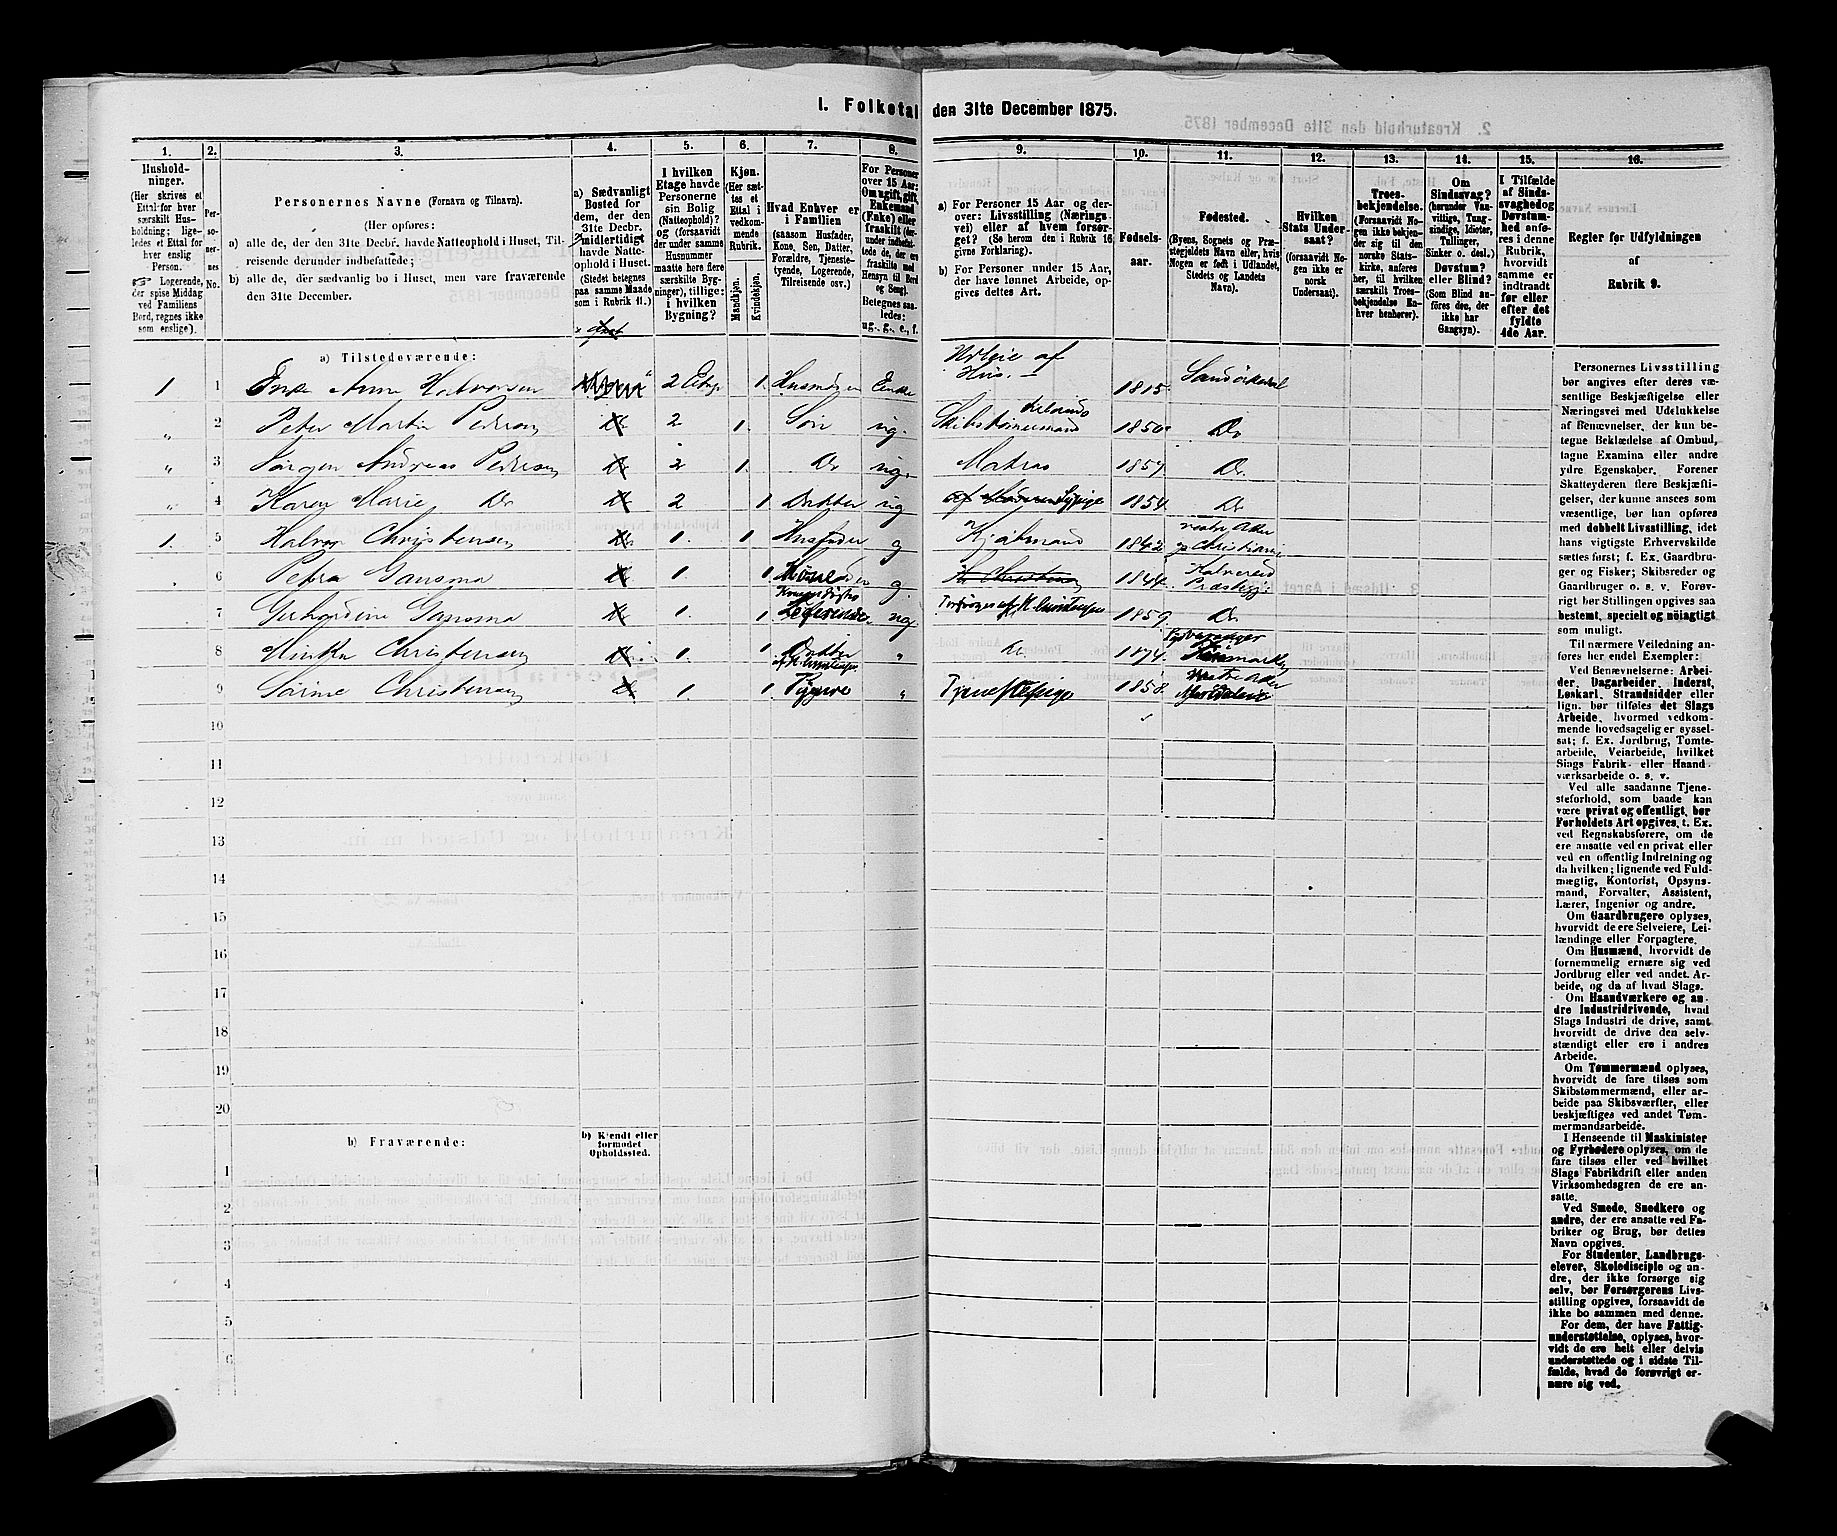 I. Folketal den 31te December 1875.
1. 2. 3. 4. 5. 6. 7. 8. 9. 10. 11. 12. 13. 14. 15. 16.
Hushold-
ninger.
(Her skrives et
Ettal for hver
særskilt Hus-
holdning; lige-
ledes et Ettal for
hver enslig
Person.
Logerende,
der spise Middag
ved Familiens
Bord, regnes ikke
som enslige).
Per-
so-
ner-
nes
No.
Personernes Navne (Fornavn og Tilnavn).
(Her opføres:
a) alle de, der den 31te Decbr. havde Natteophold i Huset, Til-
reisende derunder indbefattede;
b) alle de, der sædvanlig bo i Huset, men vare fraværende
den 31te December.
a) Sædvanligt
Bosted for
dem, der den
31te Decbr.
midlertidigt
havde Natte-
ophold i Huset.
(Stedet betegnes
paa samme Maade
som i Rubrik 11.)
I hvilken
Etage havde
Personerne
sin Bolig
(Natteophold)?
og (forsaavidt
der under samme
Husnummer
maatte høre flere
særskilte Byg-
ninger), tillige:
i hvilken
Bygning?
Kjøn.
(Her sæt-
tes et
Ettal i
vedkom-
mende
Rubrik.
Mandkjøn.
Kvindekjøn.
Hvad Enhver er
i Familien
(saasom Husfader,
Kone, Søn, Datter,
Forældre, Tjeneste-
tyende, Logerende,
Tilreisende osv.)
For Personer
over 15 Aar:
Om ugift, gift,
Enkemand
(Enke) eller
fraskilt (her-
under indbefat-
tede de, der ere
fraskilte med
Hensyn til Bord
og Seng).
Betegnes saa-
ledes:
ug., g., e., f.
a) For Personer 15 Aar og der-
over: Livsstilling (Nærings-
vei) eller af hvem forsør-
get? (Se herom den i Rubrik 16
givne Forklaring).
b) For Personer under 15 Aar,
der have lønnet Arbeide, op-
gives dettes Art.
Fødsels-
aar.
Fødested.
(Byens, Sognets og Præ-
stegjeldets Navn eller, hvis
Nogen er født i Udlandet,
Stedets og Landets
Navn).
Hvilken
Stats Under-
saat?
(forsaavidt No-
gen ikke er
norsk
Undersaat).
Troes-
bekjendelse.
(Forsaavidt No-
gen ikke bekjen-
der sig til den
norske Stats-
kirke, anføres
her, til hvilken
særskilt Troes-
bekjendelse En-
hver henhører).
Om
Sindssvag?
(herunder Van-
vittige, Tung-
sindige, Idioter,
Tullinger,
Sinker o. desl.)
Døvstum?
eller Blind?
(Som Blind an-
føres den, der
ikke har
Gangsyn).
I Tilfælde
af Sinds-
svaghed og
Døvstum-
hed anfø-
res i denne
Rubrik,
hvorvidt
samme er
indtraadt
før eller
efter det
fyldte
4de Aar.
Regler for Udfyldningen
af
Rubrik 9.
a) Tilstedeværende:
1 1 Enke Anne Halvorsen 2 Etage 1. Husmoder Enke Huseie af Hus. 1815.
„ 2 Peter Martin Pedersen 2 1. Søn ug. Skibstømmermand 1850 Do
„ 3 Jørgen Andreas Pedersen 2 1. Do ug. Matros 1857 Do.
„ 4 Karen Marie Do 2 1 Datter ug Sypige 1854. Do
1. 5 Halvor Christensen 1. 1 Husfader g Kjøbmand 1842 Vestre Aker Christiania
6 Petra Gansmo 1. 1 g. 1844.
7 Gansmo 1. 1 Logerende ug. 1859. Do.
8 Christensen 1. 1 Datter „ 1874.
9 Sørine Christensen 1. 1. „ Tjenestepige 1858.
10
11
12
13
14
15
16
17
18
19
20
b) Fraværende:
b) Kjendt eller
formodet
Opholdssted.
1
2
3
4
5
6
Personernes Livsstilling
bør angives efter deres væ-
sentlige Beskjæftigelse eller
Næringsvei med Udelukkelse
af Benævnelser, der kun be-
tegne Beklædelse af Ombud,
tagne Examina eller andre
ydre Egenskaber. Forener
Skatteyderen flere Beskjæfti-
gelser, der kunne ansees som
væsentlige, bør han opføres
med dobbelt Livsstilling, idet
hans vigtigste Erhvervskilde
sættes først; f. Ex. Gaardbru-
ger og Fisker; Skibsreder og
Gaardbruger o. s. v. Forøv-
rigt bør Stillingen opgives saa
bestemt, specielt og nøiagtigt
som muligt.
Til nærmere Veiledning an-
føres her endel Exempler:
Ved Benævnelserne: Arbei-
der, Dagarbeider, Inderst,
Løskarl, Strandsidder eller
lign. bør tilføies det Slags
Arbeide, hvormed vedkom-
mende hovedsagelig er syssel-
sat; f. Ex. Jordbrug, Tomte-
arbeide, Veiarbeide, hvilket
Slags Fabrik- eller Haand-
værksarbeide o. s. v.
Ved alle saadanne Tjene-
steforhold, som baade kan
være privat og offentligt, bør
Forholdets Art opgives, t. Ex.
ved Regnskabsførere, om de
ere ansatte ved en privat eller
ved en offentlig Indretning og
da hvilken; lignende ved Fuld-
mægtig, Kontorist, Opsyns-
mand, Forvalter, Assistent,
Lærer, Ingeniør og andre.
Om Gaardbrugere oplyses,
hvorvidt de ere Selveiere, Lei-
lændinge eller Forpagtere.
Om Husmænd, hvorvidt de
fornemmelig ernære sig ved
Jordbrug eller ved andet. Ar-
beide, og da af hvad Slags.
Om Haandværkere og an-
dre Industridrivende, hvad
Slags Industri de drive, samt
hvorvidt de drive den selv-
stændigt eller ere i andres
Arbeide.
Om Tømmermænd oplyses,
hvorvidt de fare tilsøs som
Skibstømmermænd, eller ar-
beide paa Skibsværfter, eller
beskjæftiges ved andet Tøm-
mermandsarbeide.
I Henseende til Maskinister
og Fyrbødere oplyses, om de
fare tilsøs eller ved hvilket
Slags Fabrikdrift eller anden
Virksomhedsgren de ere an-
satte.
Ved Smede, Snedkere og
andre, der ere ansatte ved Fa-
briker og Brug, bør dettes
Navn opgives.
For Studenter, Landbrugs-
elever, Skoledisciple og an-
dre, der ikke forsørge sig
selv, bør Forsørgerens Livs-
stilling opgives, forsaavidt de
ikke bo sammen med denne.
For dem, der have Fattig-
understøttelse, oplyses, hvor-
vidt de ere helt eller delvis
understøttede og i sidste Til-
fælde, hvad de forøvrigt er-
nære sig ved.